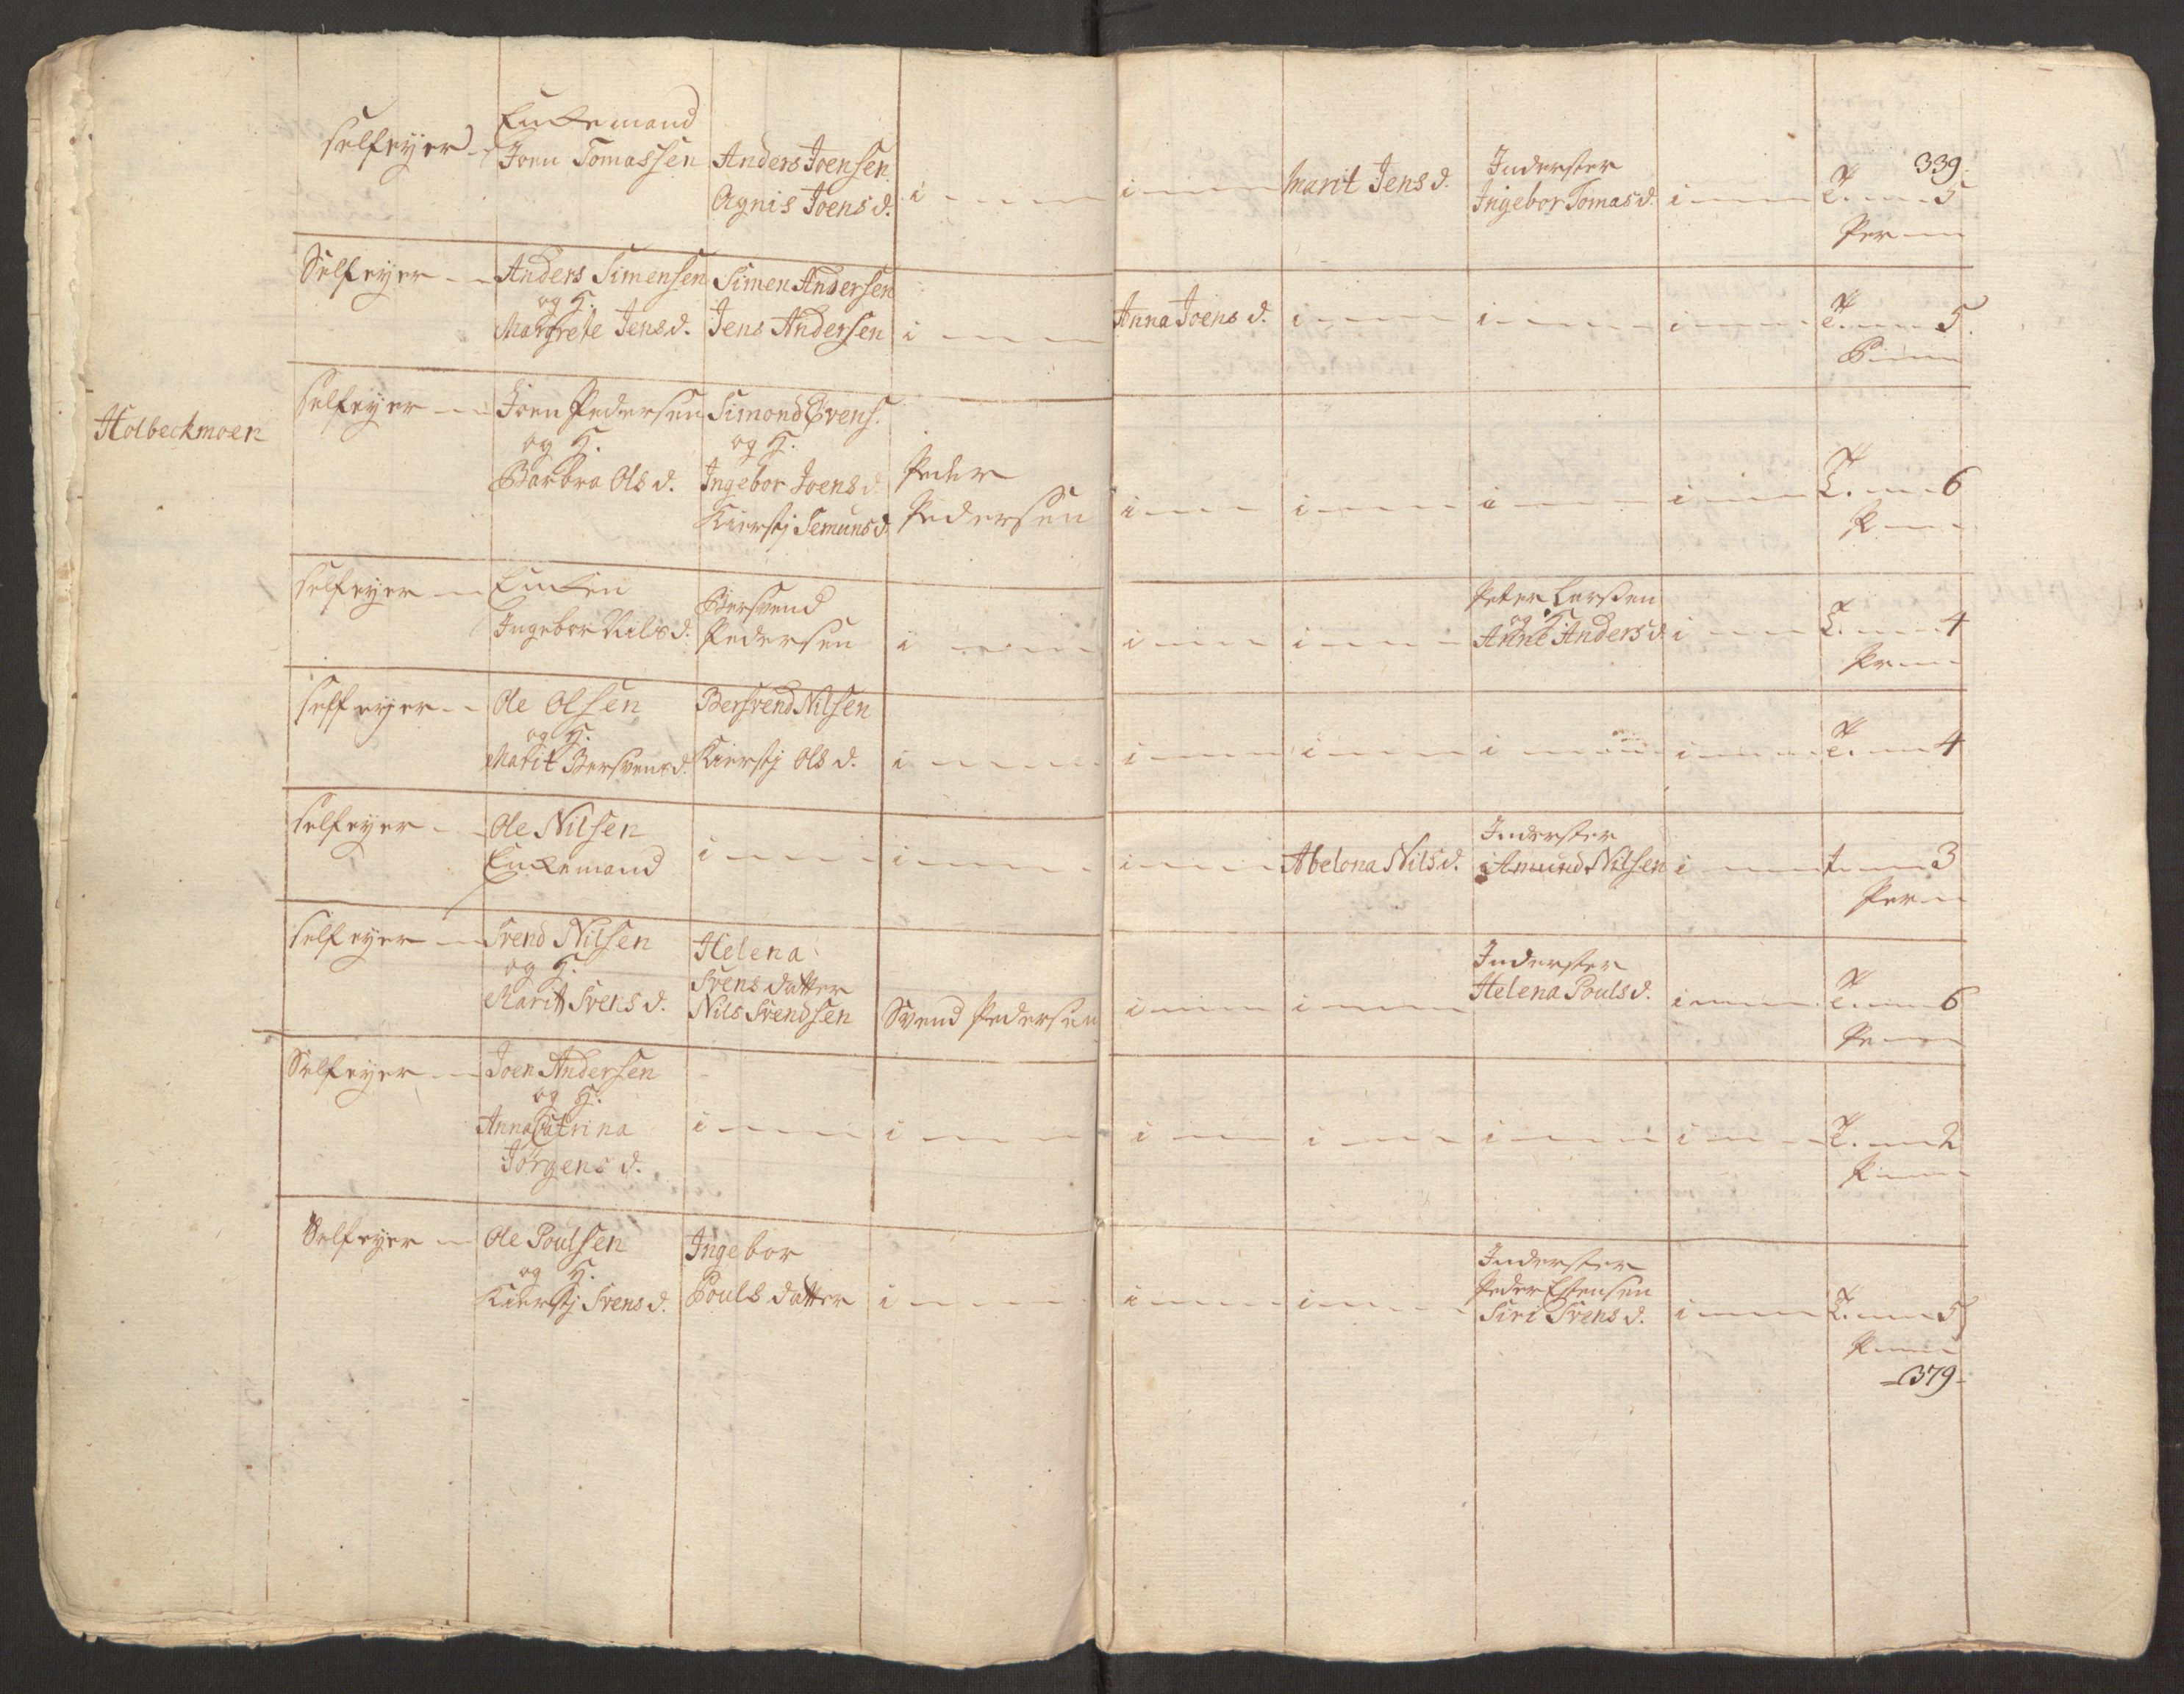 339
selfeyer
Enckemand
Joen Tomassen
Anders Joensen
Agnis Joens d.
i
i
Marit Jens d.
Inderster
Ingebor Tomas d.
i
T. 5
Per
Selfeyer
Anders Simensen
og H.
Margrete Jens d.
Simen Andersen
Jens Andersen
i
Anna Joens d.
i
i
i
T. 5.
Holbeckmoen
selfeyer
Joen Pedersen
og H.
Barbra Ols d.
Simond Evens.
og H.
Ingebor Joens d.
Kierstj Semuns d.
Peder
Pedersen
i
i
i
i
T. 6
P
selfeyer
Encken
Ingebor Nils d.
Bersvend
Pedersen
i
i
i
Peter Larssen
og H.
Anne Anders d.
i
T. 4
Per
selfeyer
Ole Olsen
og H.
Marit Bersvens d.
Bersvend Nilsen
Kierstj Ols d.
i
i
i
i
i
T. 4
selfeyer
Ole Nilsen
Enckemand
i
i
i
Abelona Nils d.
Inderster
Amund Nilsen
i
t 3
Per
selfeyer
Svend Nilsen
og H.
Marit Svens d.
Helena
Svens datter
Nils Svendsen
Svend Pedersen
i
i
Inderster
Helena Pouls d.
i
T. 6
Pe
Selfeyer
Joen Andersen
og H.
Anna Catrina
Jørgens d.
i
i
i
i
i
i
T. 2
P
Selfeyer
Ole Poulsen
og H.
Kierstj Svens d.
Ingebor
Pouls datter
i
i
i
Inderster
Peder Estensen
Siri Svens d.
i
T. 5
P
379